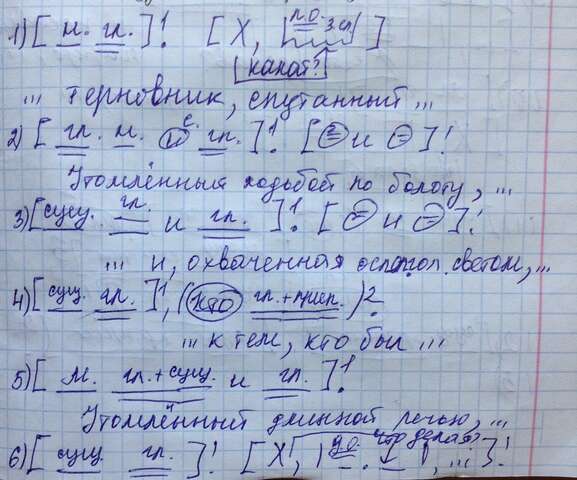 1) [ м. гл. ]¹. [ X, |п.о. з.сл.| ]
какой?
... терновник, спутанный ...
2) [ гл. м. и с. гл. ]¹. [ = и = ]¹.
Утомлённый ходьбой по болоту, ...
3) [ сущ. гл. и гл. ]¹. [ = и = ]¹.
... и, охваченная ослепл. светом, ...
4) [ сущ. гл. ]¹, ( кто гл.+прил. )².
... к тем, кто был ...
5) [ м. гл.+сущ. и гл. ]¹.
Утомлённый длинной речью, ...
6) [ сущ гл. ]¹. [ X, | д.о. что делая? |, ... ]¹.